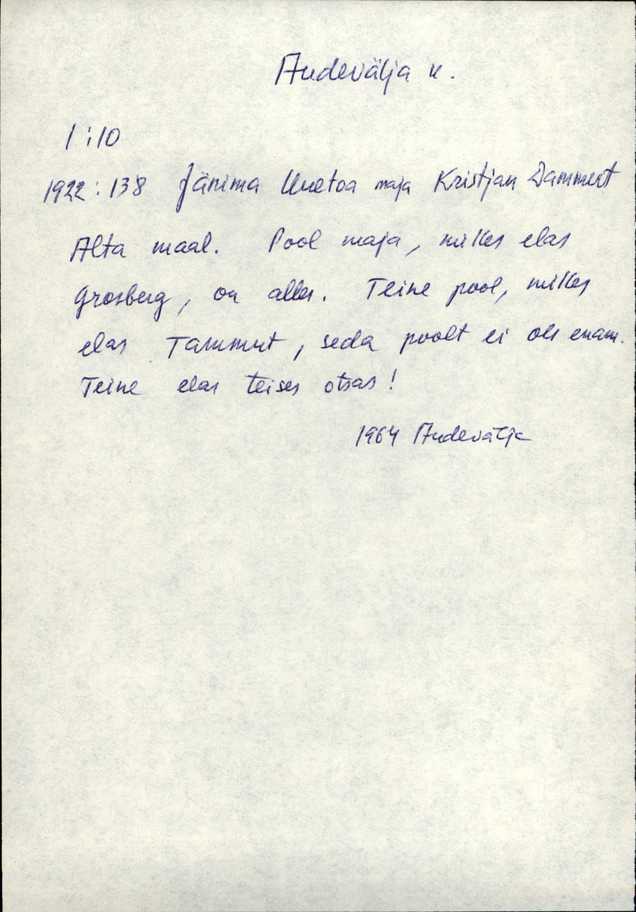 Audevälja k.
1:10
1922:138 Jänima Uuetoa maja Kristjan Dammert
Alta maal. Pool maja, milles elas
Grosberg, on alles. Teine pool, milles
elas Tammut, seda poolt ei ole enam.
Teine elas teises otsas!
1964 Audevälja